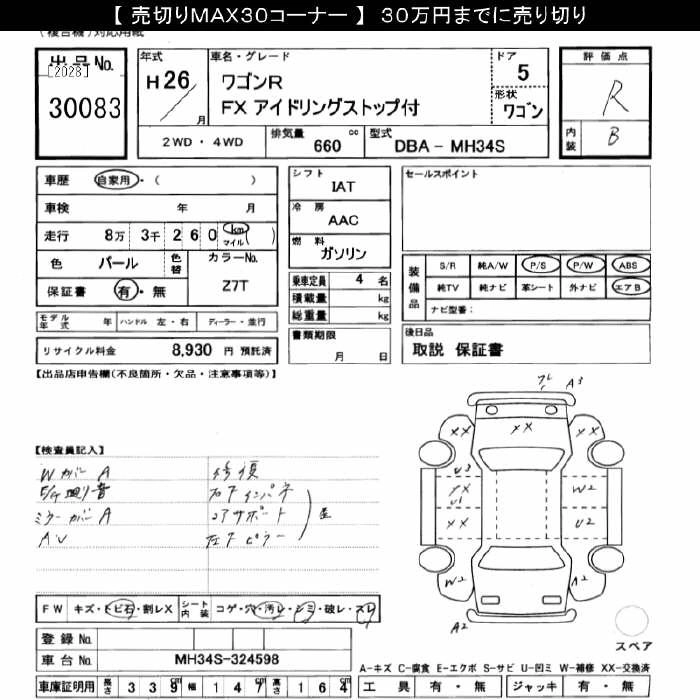 【 売切りMAX30コーナー 】 30万円までに売り切り
(複合機)対応用紙
出品No.
[2028]
30083
年式
H26
月
車名・グレード
ワゴンR
FX アイドリングストップ付
ドア
5
形状
ワゴン
2WD ・ 4WD
排気量 660 cc
型式 DBA - MH34S
評価点
R
内装 B
車歴 自家用・( )
車検 年 月
走行 8万 3千 2 6 0 km マイル( )
色 パール 色替
カラーNo.
Z7T
保証書 有・無
モデル年式 年 ハンドル 左・右 ディーラー・並行
リサイクル料金 8,930 円 預託済
シフト
IAT
冷房
AAC
燃料
ガソリン
乗車定員 4 名
積載量 kg
総重量 kg
書類期限
月 日
セールスポイント
装備品
S/R 純A/W P/S P/W ABS
純TV 純ナビ 革シート 外ナビ エアB
ナビ型番:
後日品
取説 保証書
【出品店申告欄(不良箇所・欠品・注意事項等)】
【検査員記入】
Wカバー A
E/G廻り音
ミラーカバー A
AU
修復
右下インパネ
コアサポート
左下ピラー
A3
XX XX XX
U3
U1
XX
W2
U2
W2
A2
A2
スペア
FW キズ・トビ石・割レX
シート内装 コゲ・穴・汚レ・シミ・破レ・スレ
登録No.
車台No. MH34S-324598
車庫証明用 長さ 3 3 9 cm 幅 1 4 7 cm 高さ 1 6 4 cm
A-キズ C-腐食 E-エクボ S-サビ U-凹ミ W-補修 XX-交換済
工具 有・無 ジャッキ 有・無